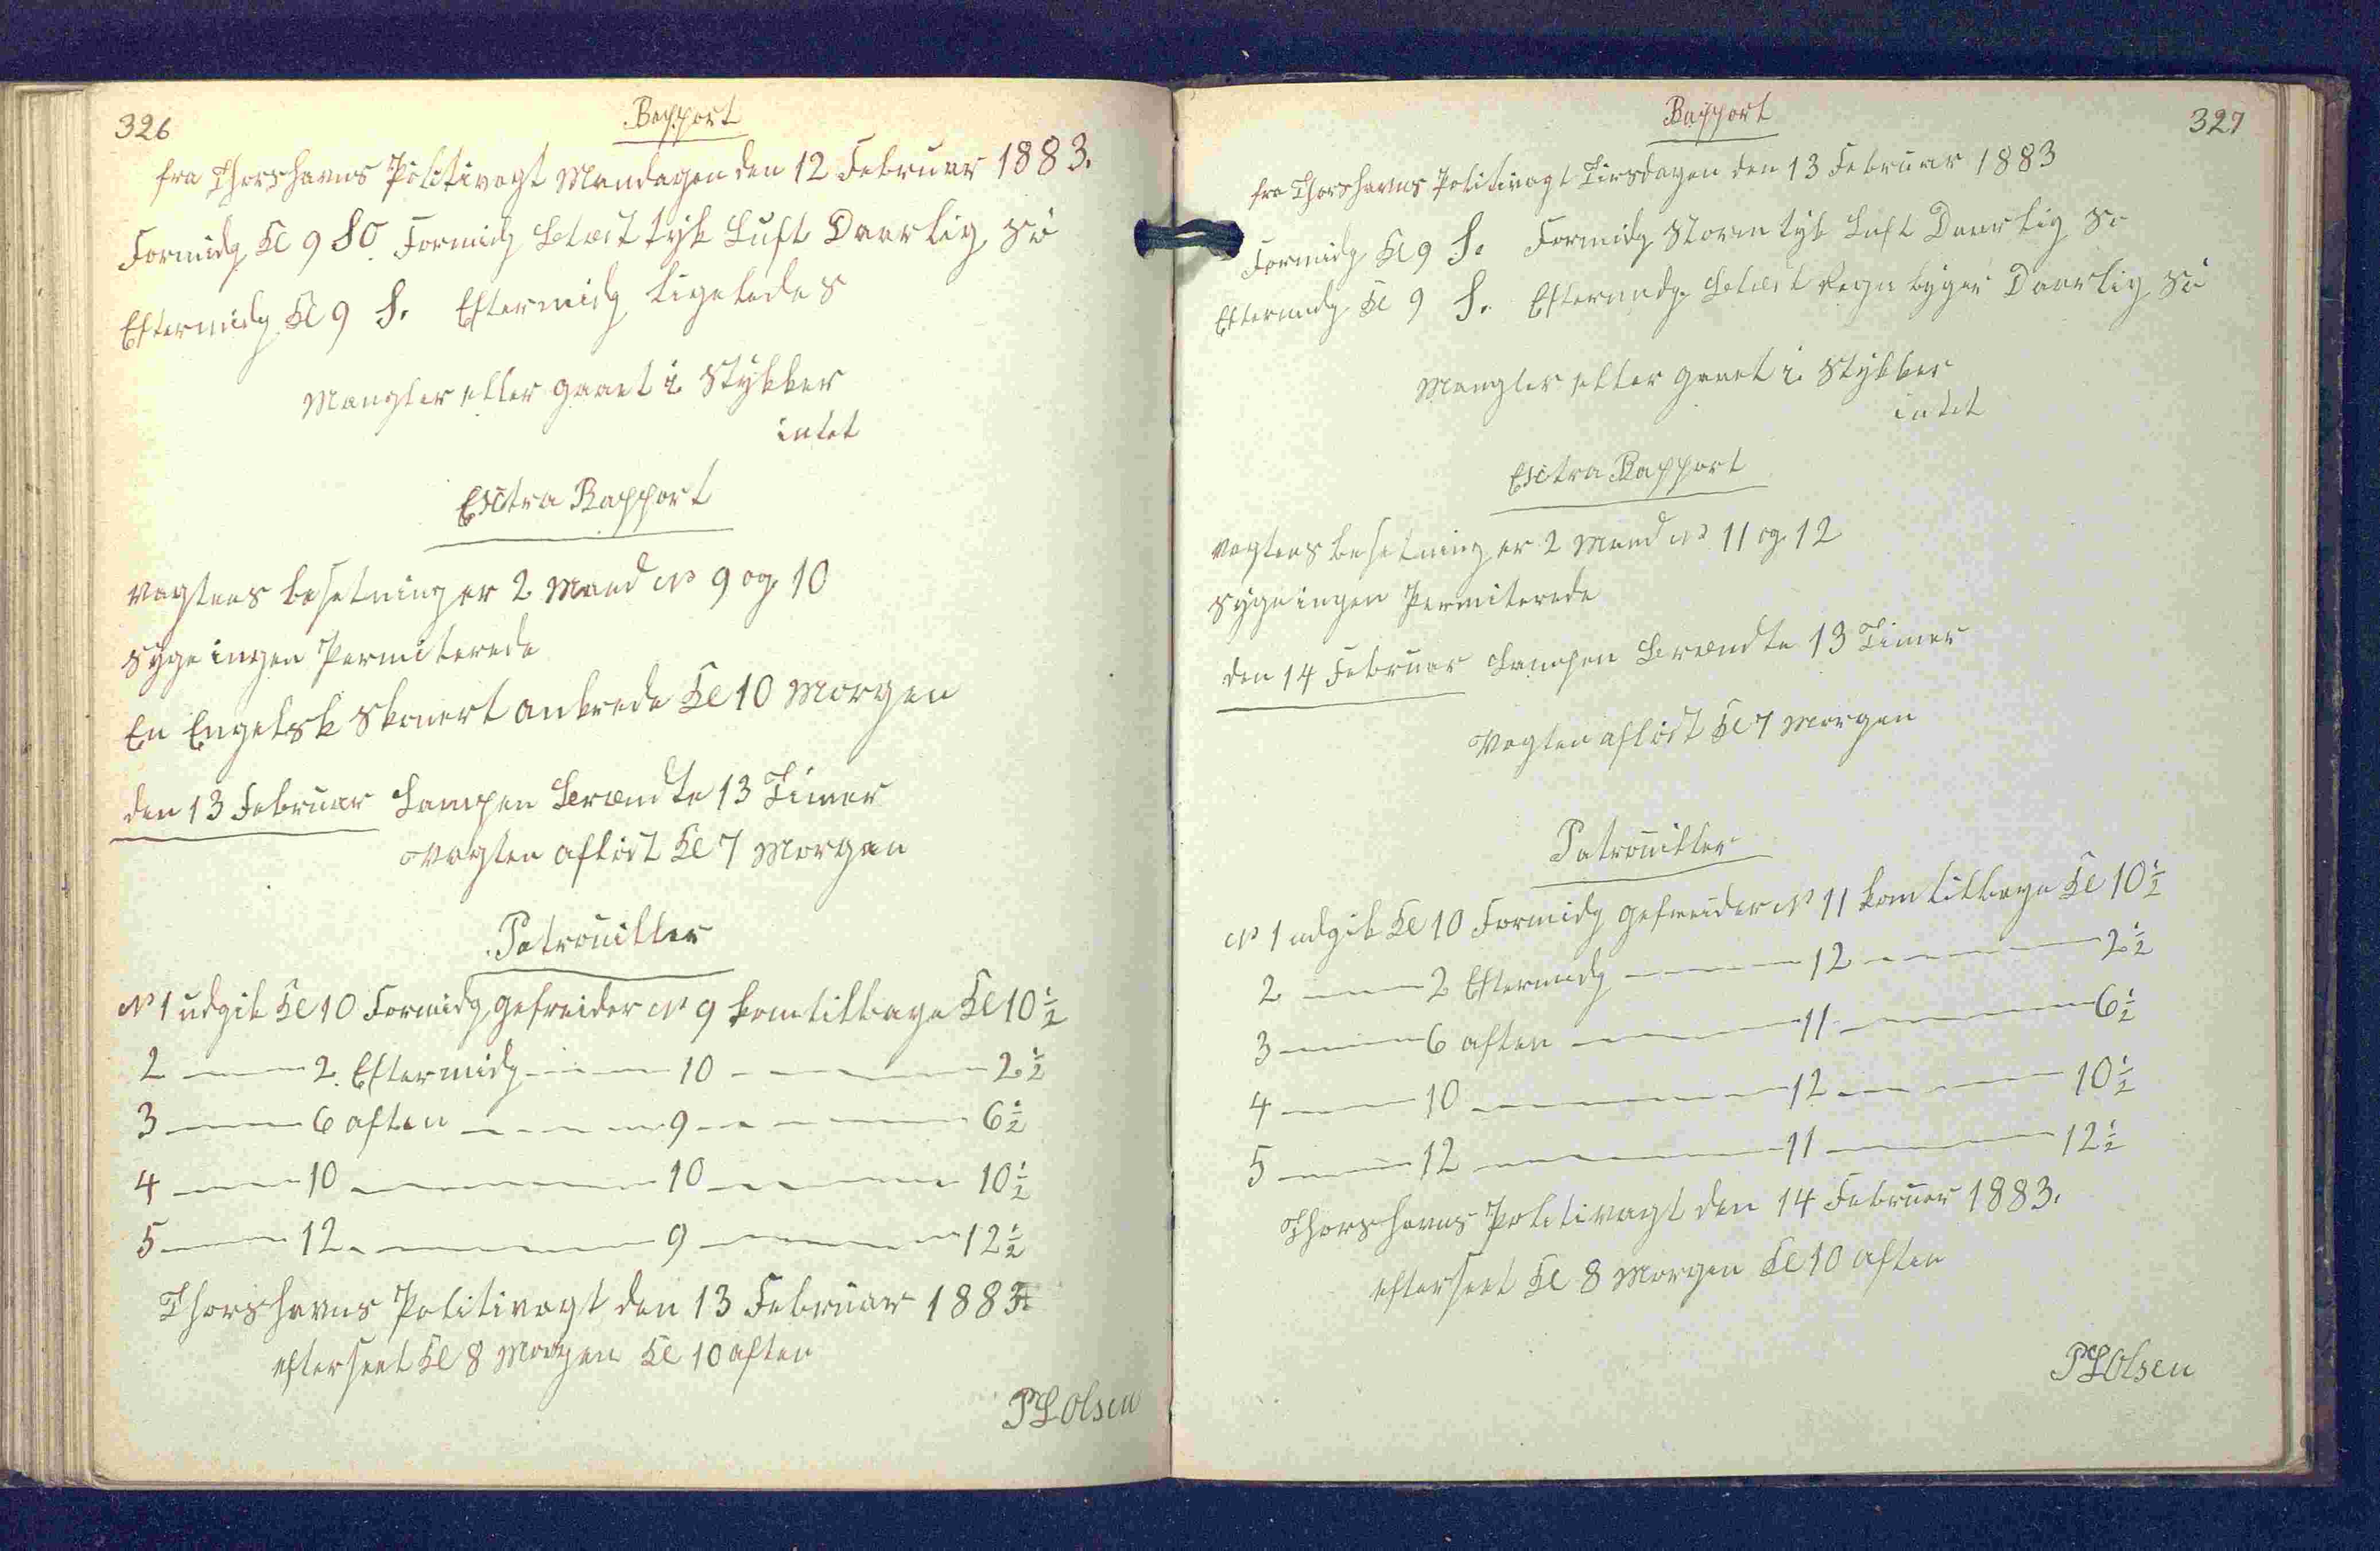 326
Rapport
fra Thorshavns Politivagt Mandagen den 12 Februar 1883.
Formidg Kl 9 SO. Formidg Blæst tyk Luft Daarlig Sö
Eftermidg Kl 9 S. Eftermidg ligeledes
Mangler eller gaaet i Stykker
intet
Extra Rapport
Vagtens besetning er 2 Mand No 9 og 10
Syge ingen Permiterede
En Engelsk Skonert ankrede Kl 10 Morgen
den 13 Februar Lampen Brændte 13 Timer
Vagten aflöst Kl 7 Morgen
Patrouiller
No 1 udgik Kl 10 Formidg gefreider No 9 kom tilbage Kl 10 1/2
2 — 2 Eftermidg — 10 — 2 1/2
3 — 6 aften — 9 — 6 1/2
4 — 10 — 10 — 10 1/2
5 — 12 — 9 — 12 1/2
Thorshavns Politivagt den 13 Februar 1883
efterseet Kl 8 Morgen Kl 10 aften
Olsen
327
Rapport
fra Thorshavns Politivagt Tirsdagen den 13 Februar 1883
Formidg Kl 9 S. Formidg Storm tyk Luft Daarlig Sö
Eftermidg Kl 9 S. Eftermidg Blæst Regn byger Daarlig Sö
Mangler eller gaaet i Stykker
intet
Extra Rapport
Vagtens besetning er 2 Mand No 11 og 12
Syge ingen Permiterede
den 14 Februar Lampen Brændte 13 Timer
Vagten aflöst Kl 7 Morgen
Patrouiller
No 1 udgik Kl 10 Formidg gefreider No 11 kom tilbage Kl 10 1/2
2 — 2 Eftermidg — 12 — 2 1/2
3 — 6 aften — 11 — 6 1/2
4 — 10 — 12 — 10 1/2
5 — 12 — 11 — 12 1/2
Thorshavns Politivagt den 14 Februar 1883.
efterseet Kl 8 Morgen Kl 10 aften
Olsen